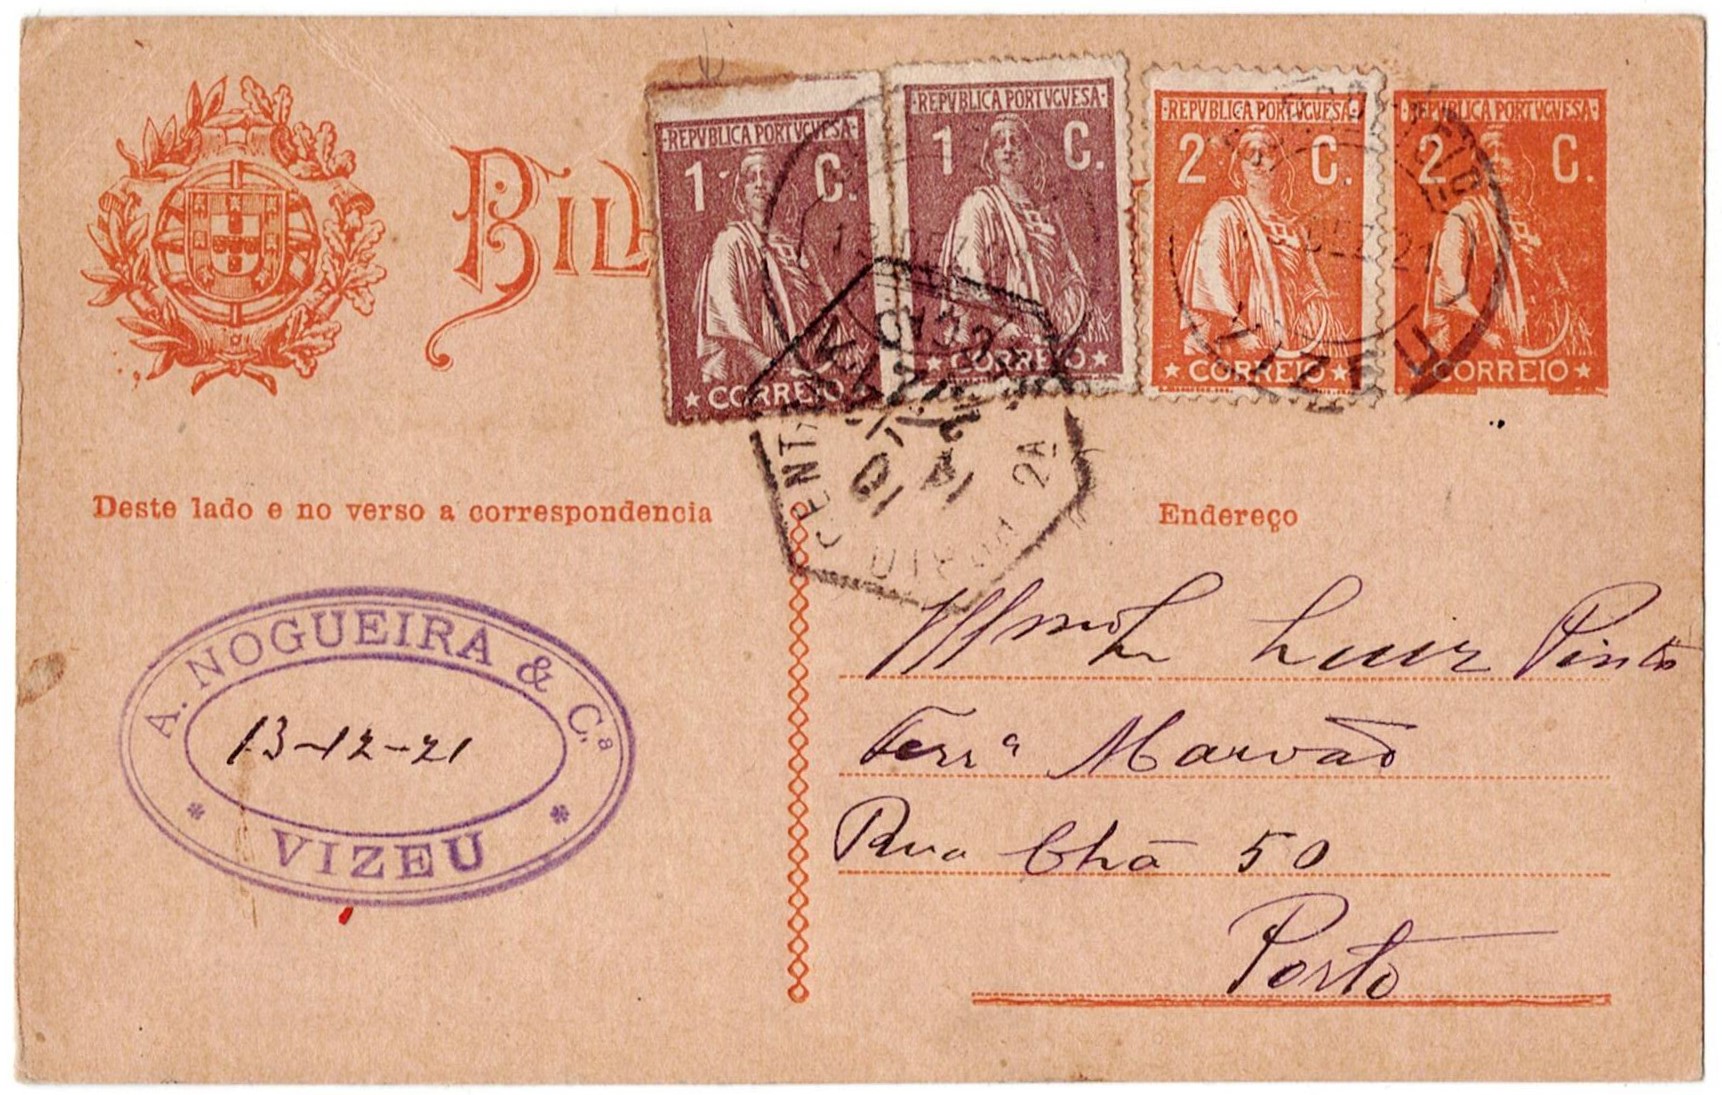 BIL
REPVBLICA PORTVGVESA
1 C.
CORREIO
REPVBLICA PORTVGVESA
1 C.
CORREIO
REPVBLICA PORTVGVESA
2 C.
CORREIO
REPVBLICA PORTVGVESA
2 C.
CORREIO
DEZ 21
VIZEU
2A
Deste lado e no verso a correspondencia
Endereço
A. NOGUEIRA & C.ª
13-12-21
* VIZEU *
Luiz Pinto
Ferr.ª Marvão
Rua Chã 50
Porto